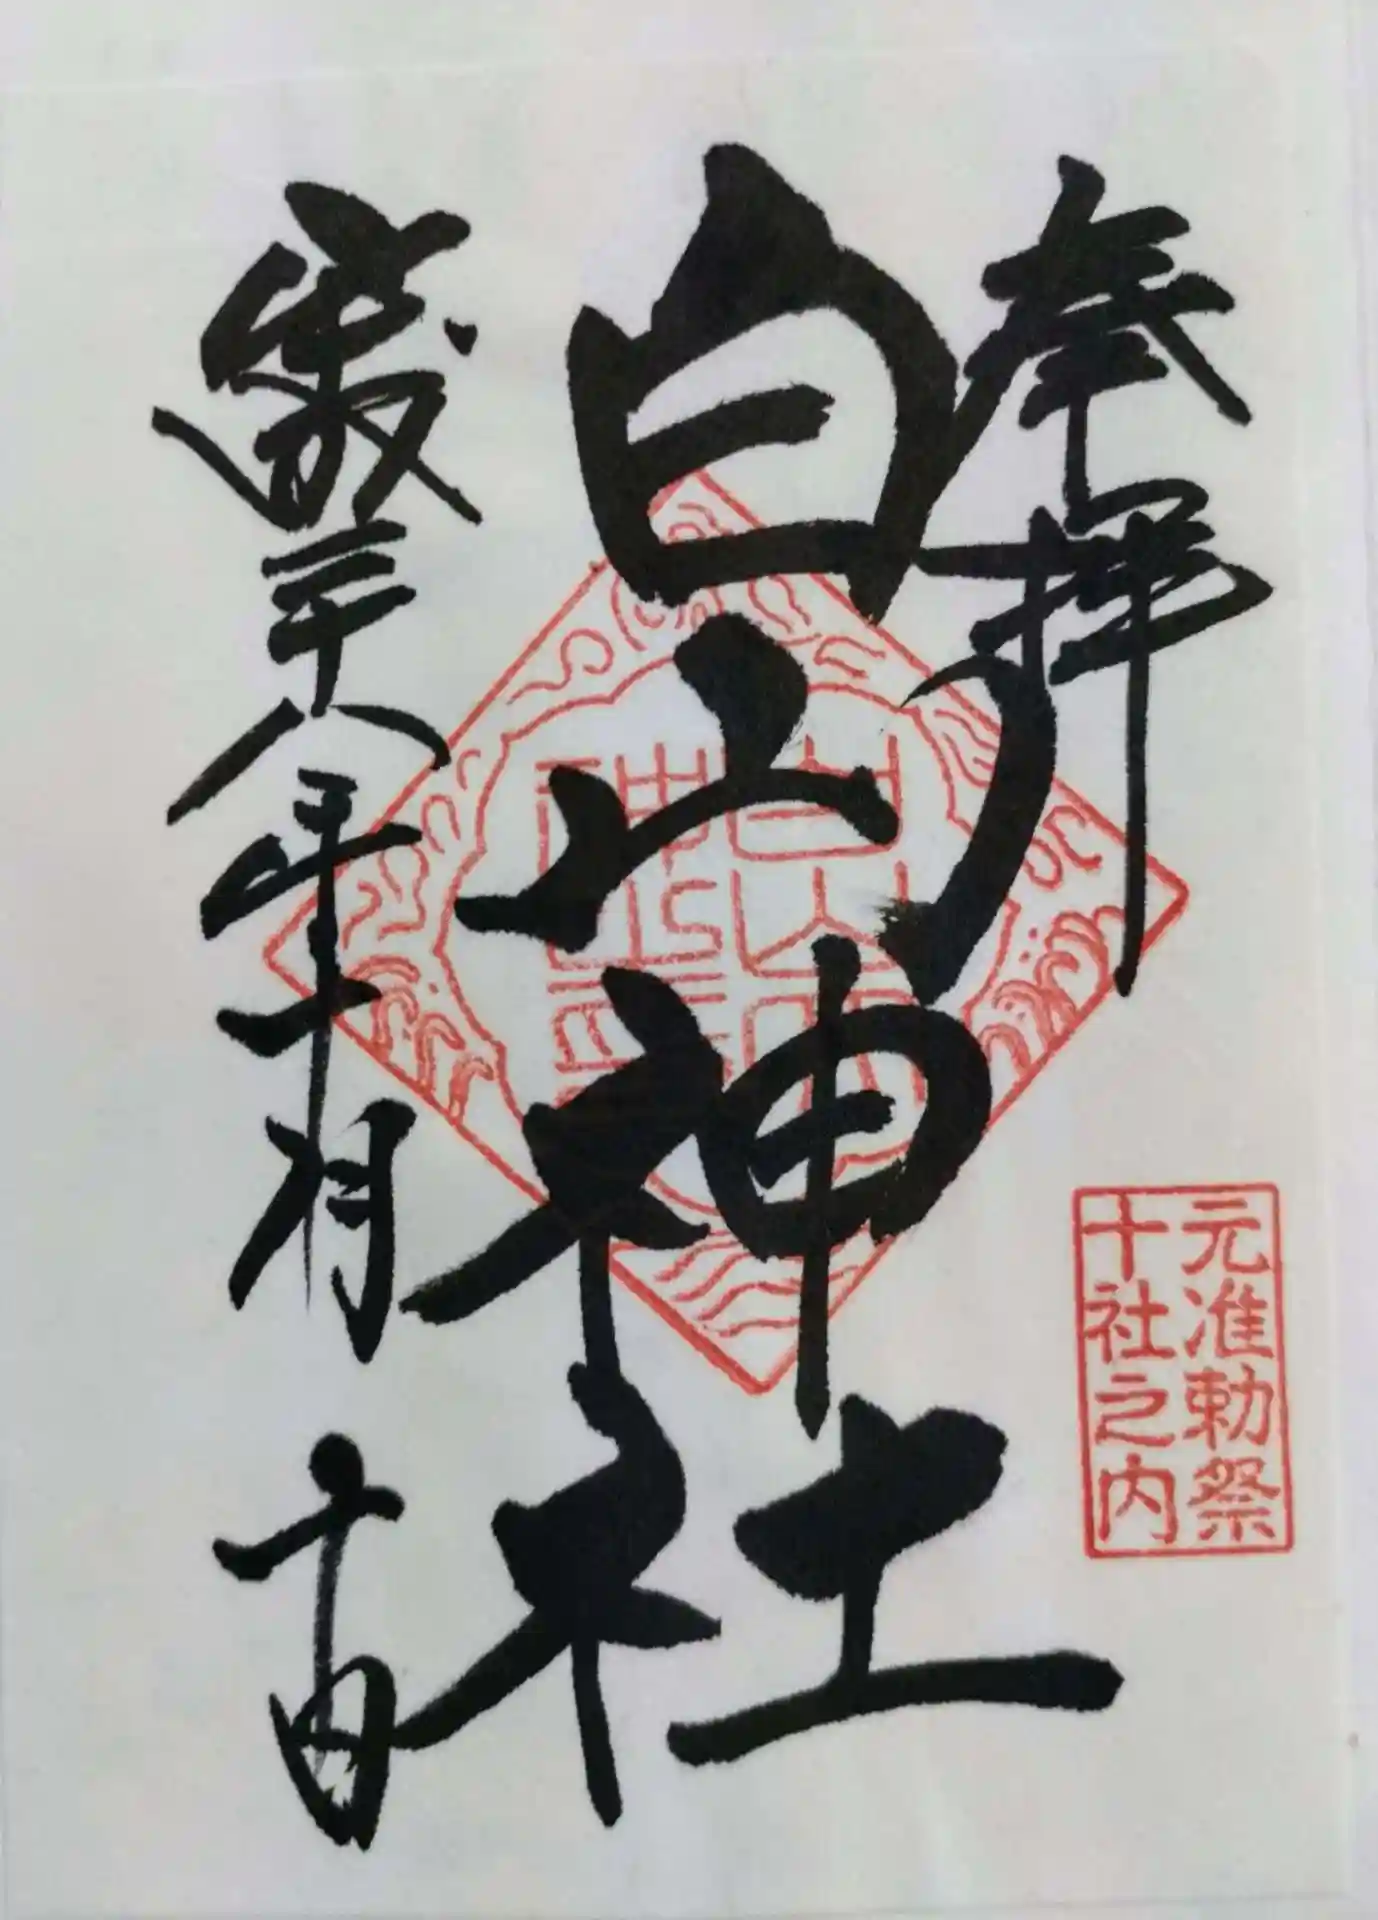 奉拝
白山神社
歳二十八年十月十日
元准勅祭
十社之内